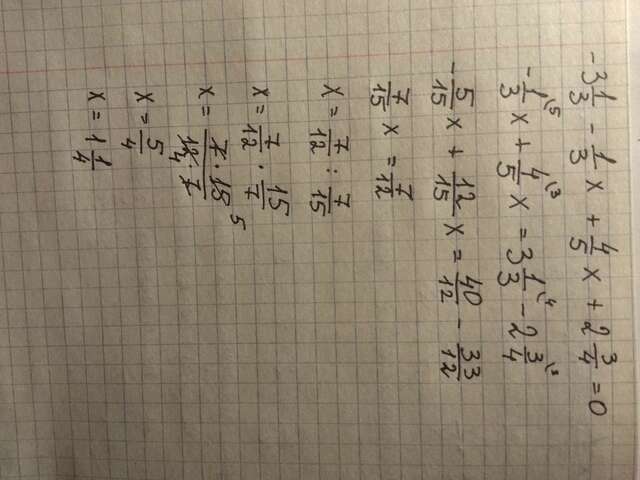 -3 1/3 - 1/3 x + 4/5 x + 2 3/4 = 0
- 1/3 \5 x + 4/5 \3 x = 3 1/3 \4 - 2 3/4 \3
- 5/15 x + 12/15 x = 40/12 - 33/12
7/15 x = 7/12
x = 7/12 : 7/15
x = 7/12 · 15/7
x = 7 · 15 5 / 12 4 · 7
x = 5/4
x = 1 1/4